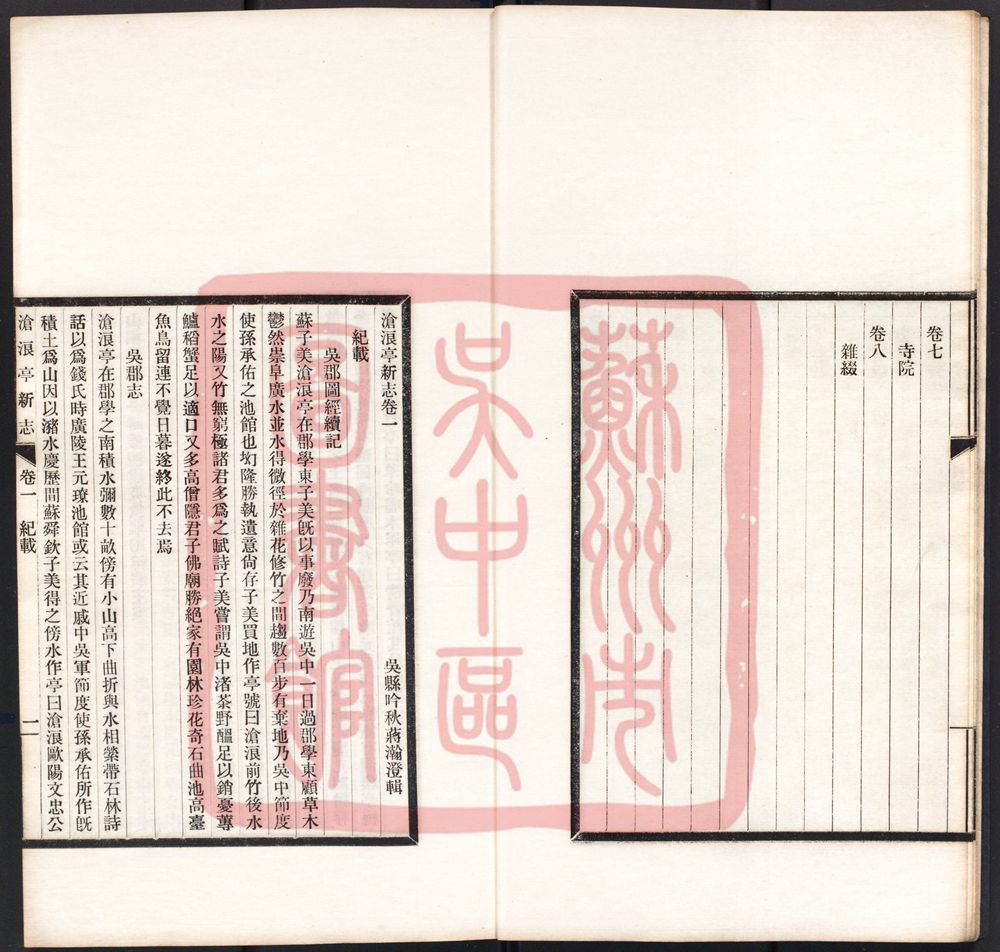 卷七
寺院
卷八
雜綴
滄浪亭新志卷一
吳縣吟秋蔣瀚澄輯
紀載
吳郡圖經續記
蘇子美滄浪亭在郡學東子美旣以事廢乃南遊吳中一日過郡學東顧草木
鬱然崇阜廣水並水得微徑於雜花修竹之間趨數百步有棄地乃吳中節度
使孫承佑之池館也坳隆勝執遺意尙存子美買地作亭號曰滄浪前竹後水
水之陽又竹無窮極諸君多爲之賦詩子美嘗謂吳中渚茶野醞足以銷憂蓴
鱸稻蟹足以適口又多高僧隱君子佛廟勝絕家有園林珍花奇石曲池高臺
魚鳥留連不覺日暮遂終此不去焉
吳郡志
滄浪亭在郡學之南積水彌數十畝傍有小山高下曲折與水相縈帶石林詩
話以爲錢氏時廣陵王元璙池館或云其近戚中吳軍節度使孫承佑所作旣
積土爲山因以瀦水慶歷間蘇舜欽子美得之傍水作亭曰滄浪歐陽文忠公
滄浪亭新志
卷一
紀載
一
蘇州市
吳中區
圖書館